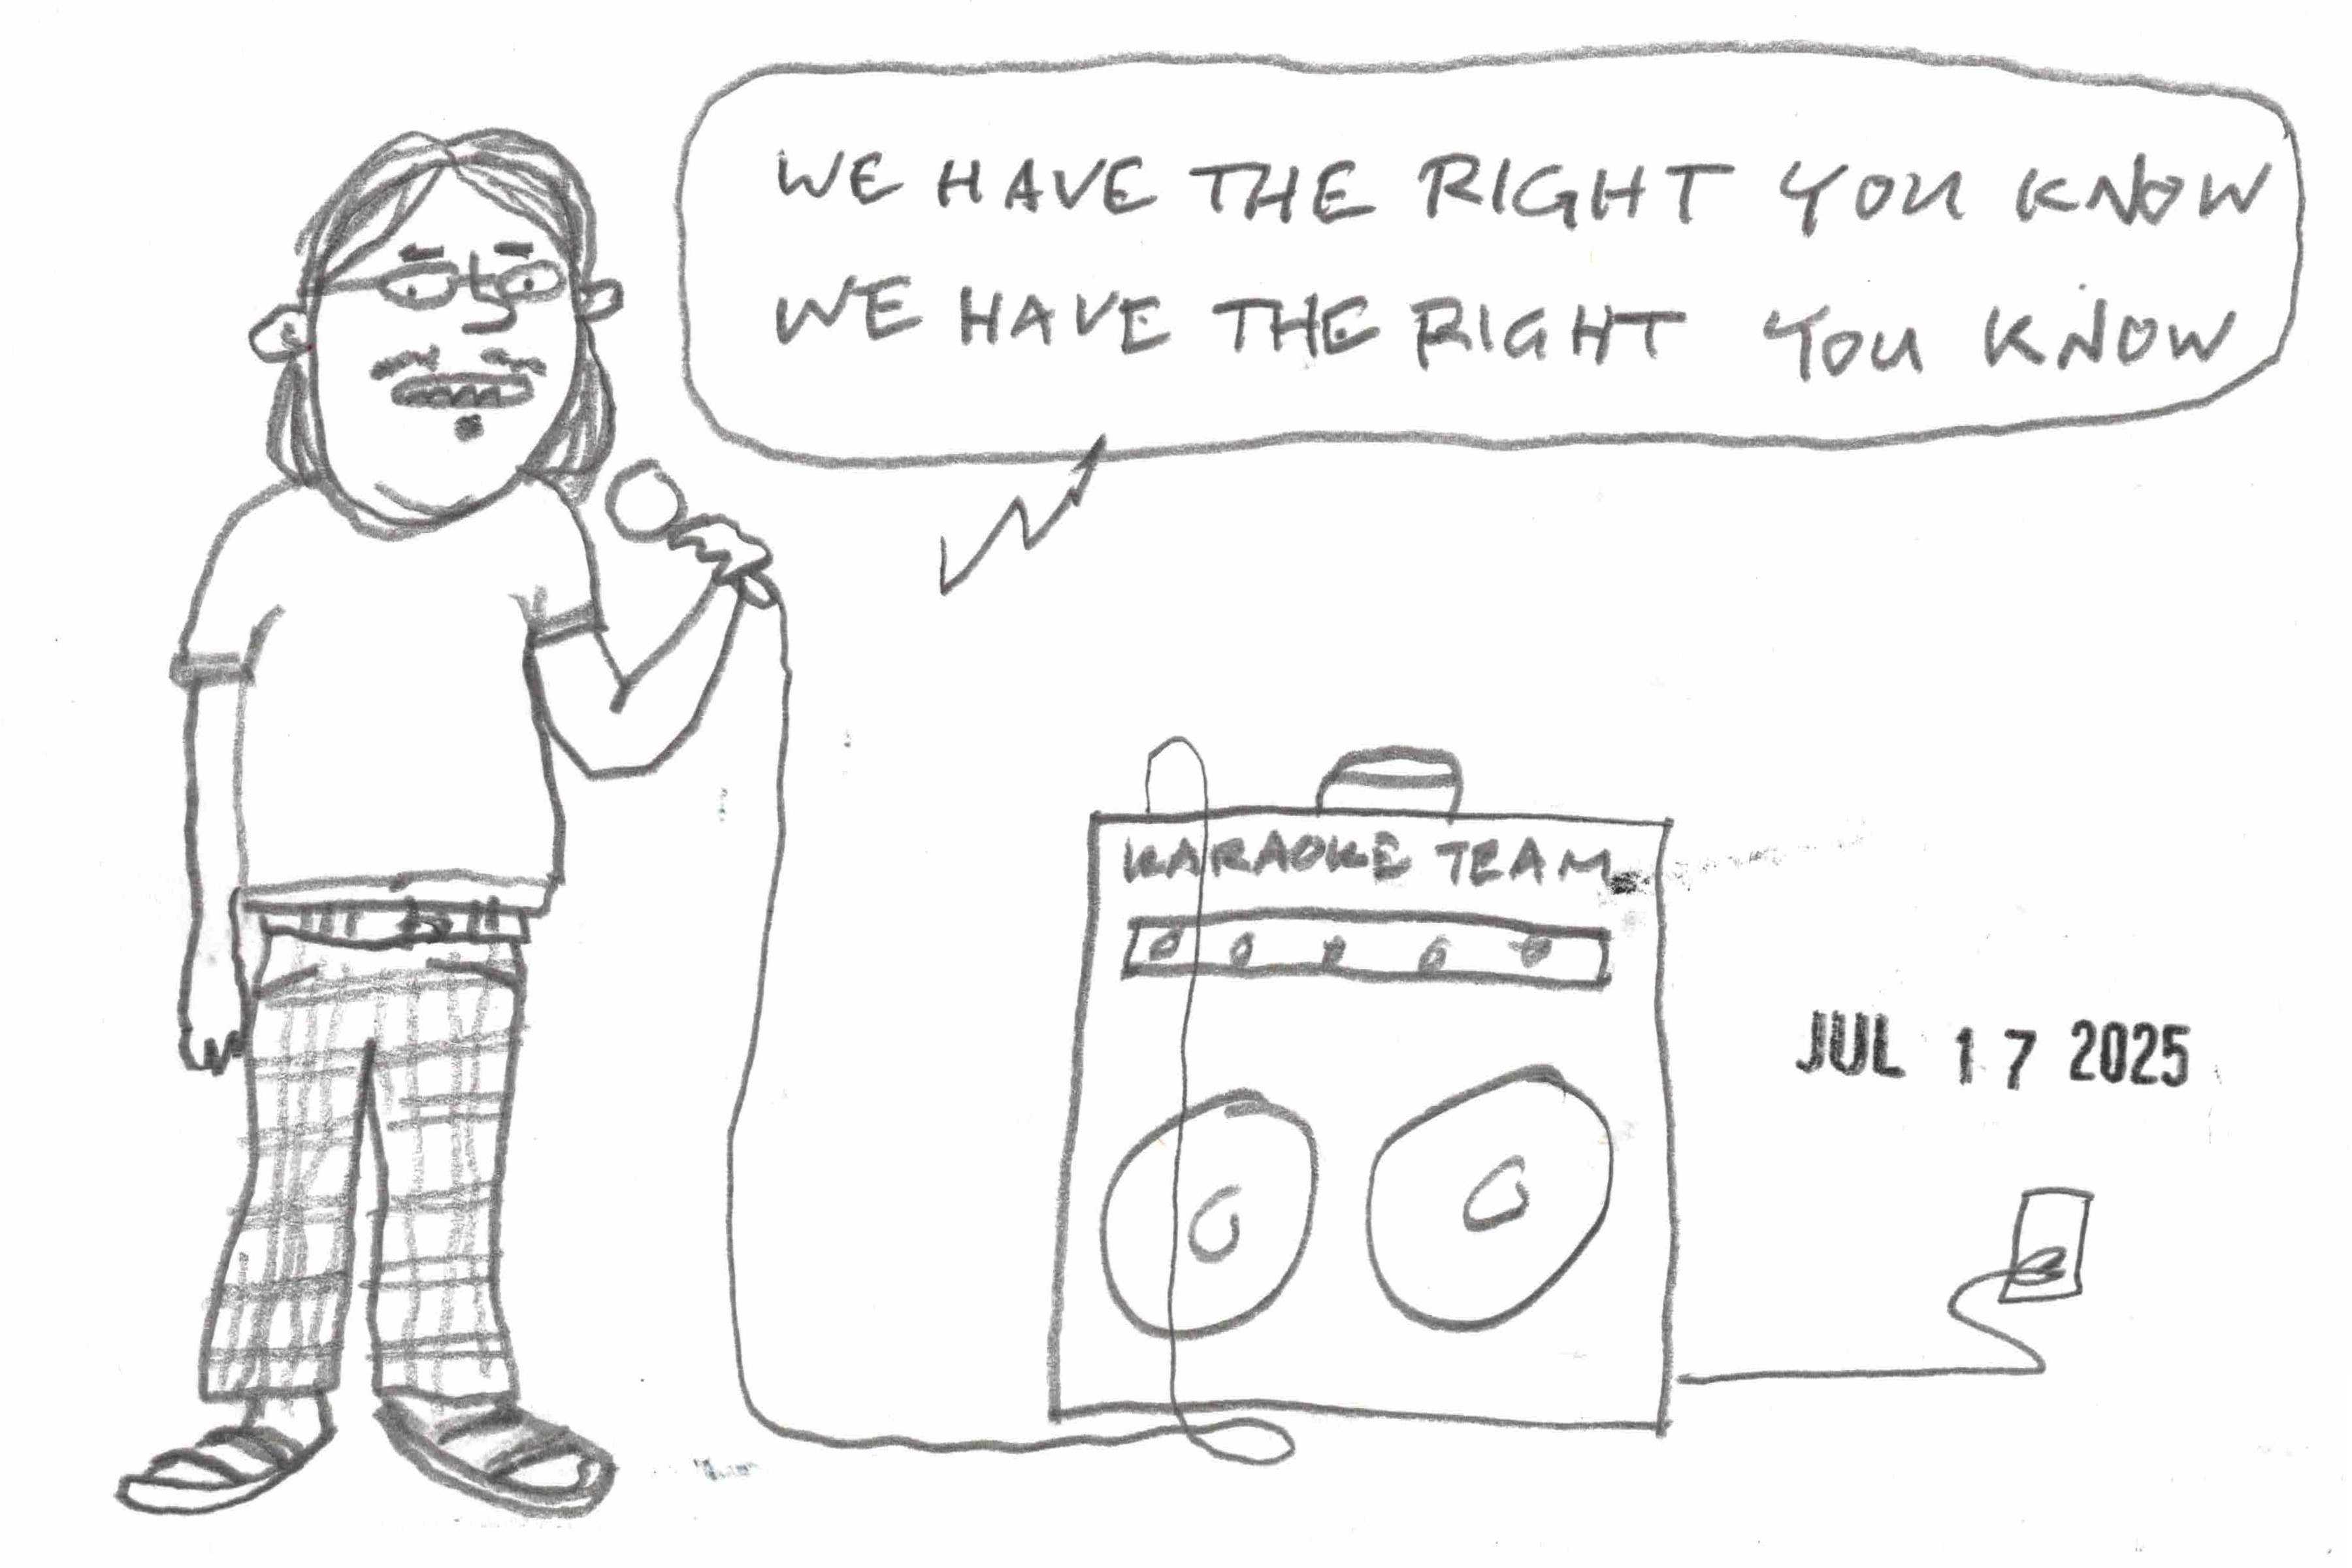 WE HAVE THE RIGHT YOU KNOW
WE HAVE THE RIGHT YOU KNOW
KARAOKE TEAM
JUL 17 2025